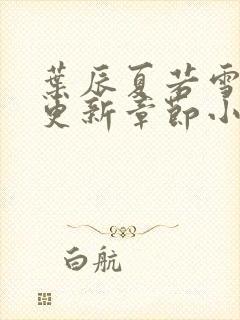 葉辰夏若雪
更新章節小
白航